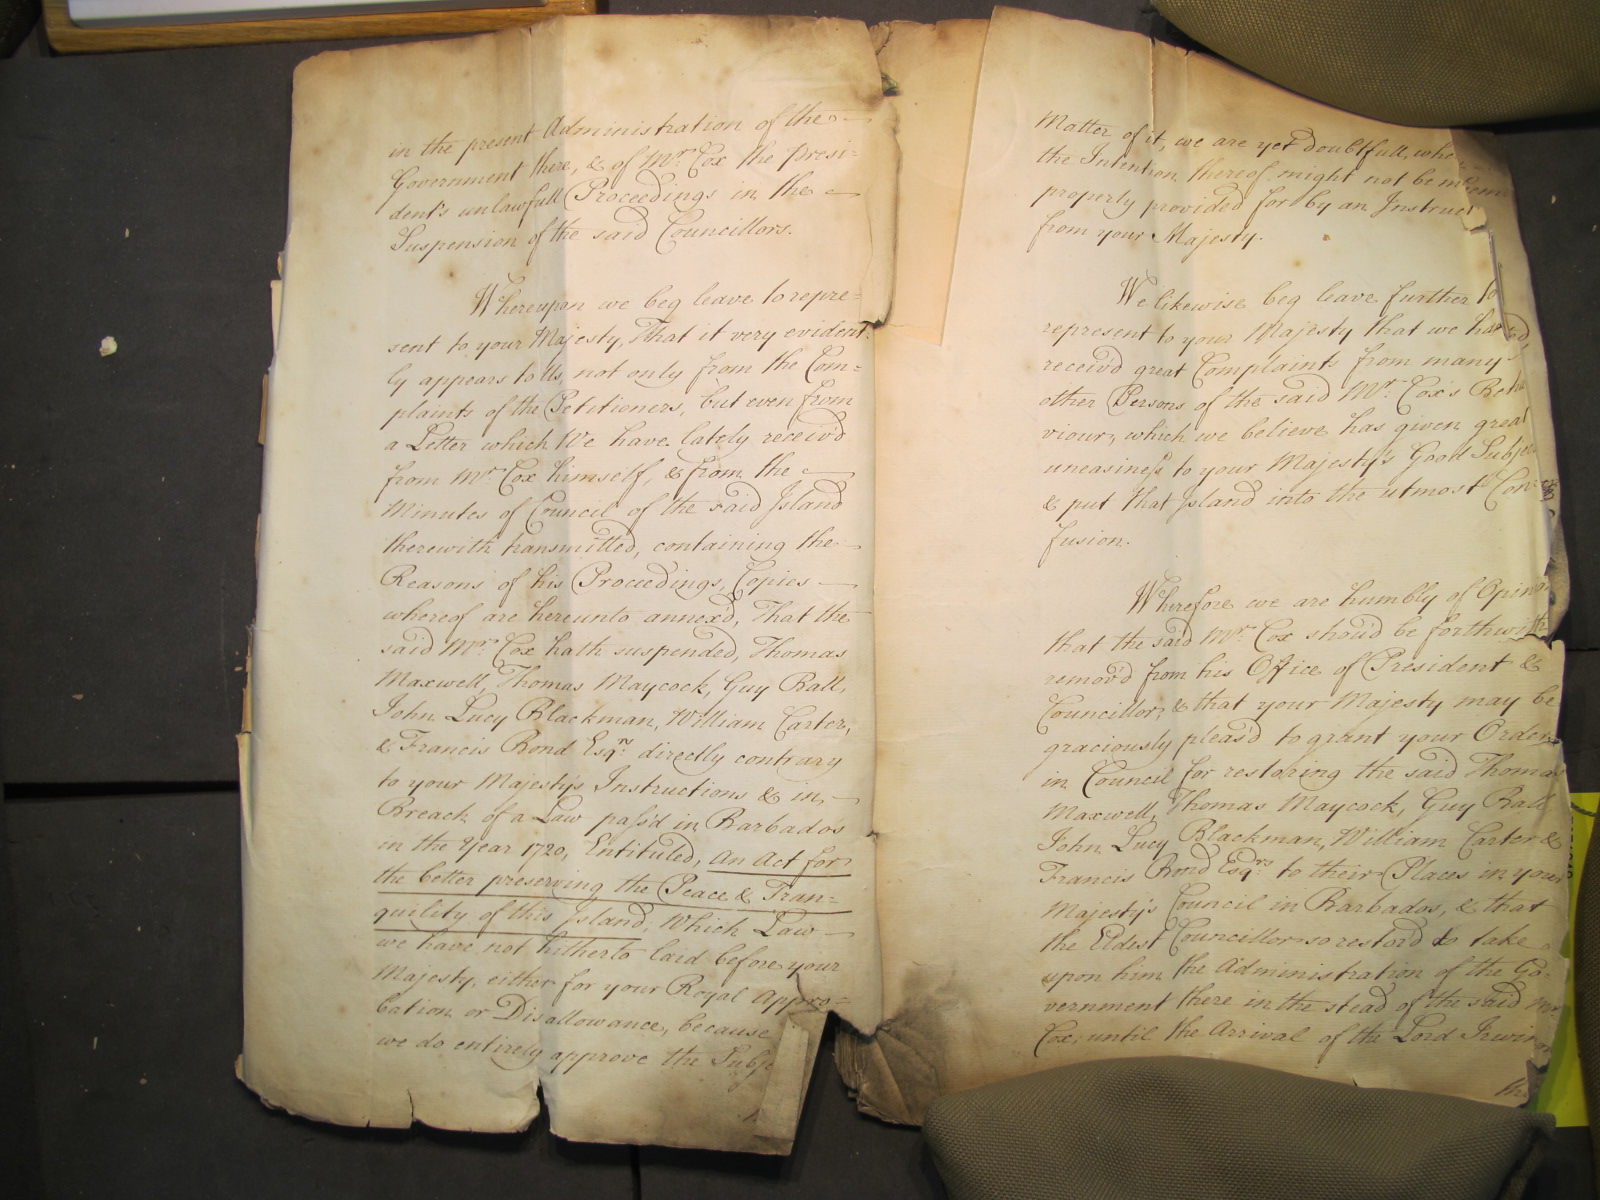 in the present Administration of the
Government there, & of Mr. Cox the Presi=
dent's unlawfull Proceedings in the
Suspension of the said Councillors.
Whereupon we beg leave to repre=
sent to your Majesty, That it very evident=
ly appears to Us, not only from the Com=
plaints of the Petitioners, but even from
a Letter which We have lately receiv'd
from Mr. Cox himself, & from the
Minutes of Council of the said Island
therewith transmitted, containing the
Reasons of his Proceedings, Copies
whereof are hereunto annex'd, That the
said Mr. Cox hath suspended, Thomas
Maxwell, Thomas Maycock, Guy Ball,
John Lucy Blackman, William Carter,
& Francis Bond Esqrs. directly contrary
to your Majesty's Instructions & in
Breach of a Law pass'd in Barbados
in the Year 1720, Entituled, An Act for
the better preserving the Peace & Tran=
quility of this Island, Which Law
we have not hitherto laid before your
Majesty, either for your Royal Appro=
bation or Disallowance, because
we do entirely approve the Subje
Matter of it, we are yet doubtfull, whe
the Intention thereof might not be
properly provided for by an Instruct
from your Majesty.
We likewise beg leave further to
represent to your Majesty that we have
receiv'd great Complaints from many
other Persons of the said Mr. Cox's Beha
viour, which we believe has given great
uneasiness to your Majesty's Good Subje
& put that Island into the utmost Con=
fusion.
Wherefore we are humbly of Opin
that the said Mr. Cox shou'd be forthwith
remov'd from his Office of President &
Councillor, & that your Majesty may be
graciously pleas'd to grant your Order
in Council for restoring the said Thomas
Maxwell, Thomas Maycock, Guy Ball
John Lucy Blackman, William Carter &
Francis Bond Esqrs. to their Places in your
Majesty's Council in Barbados, & that
the Eldest Councillor so restor'd to take
upon him the Administration of the Go=
vernment there in the stead of the said Mr.
Cox, until the Arrival of the Lord Irwin